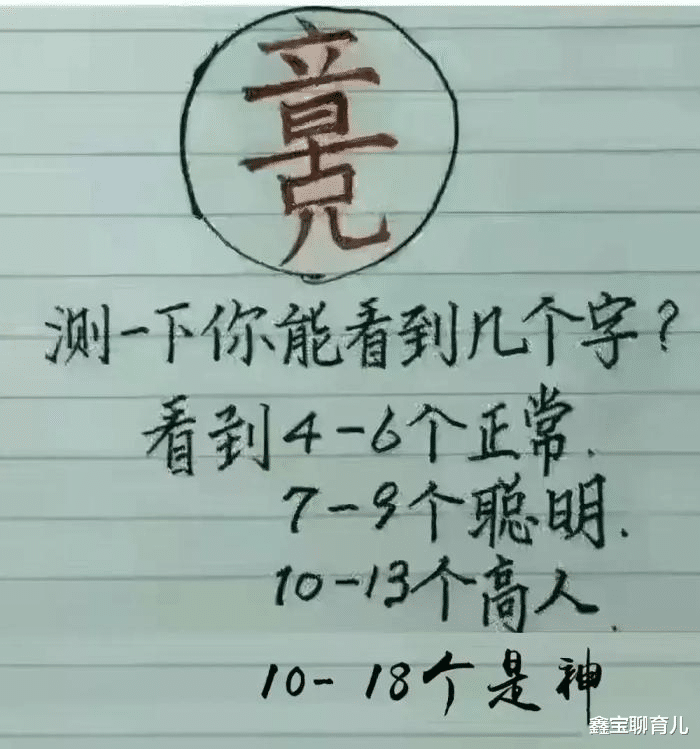 测一下你能看到几个字?
看到4-6个正常.
7-9个聪明.
10-13个高人.
10-18个是神
鑫宝聊育儿